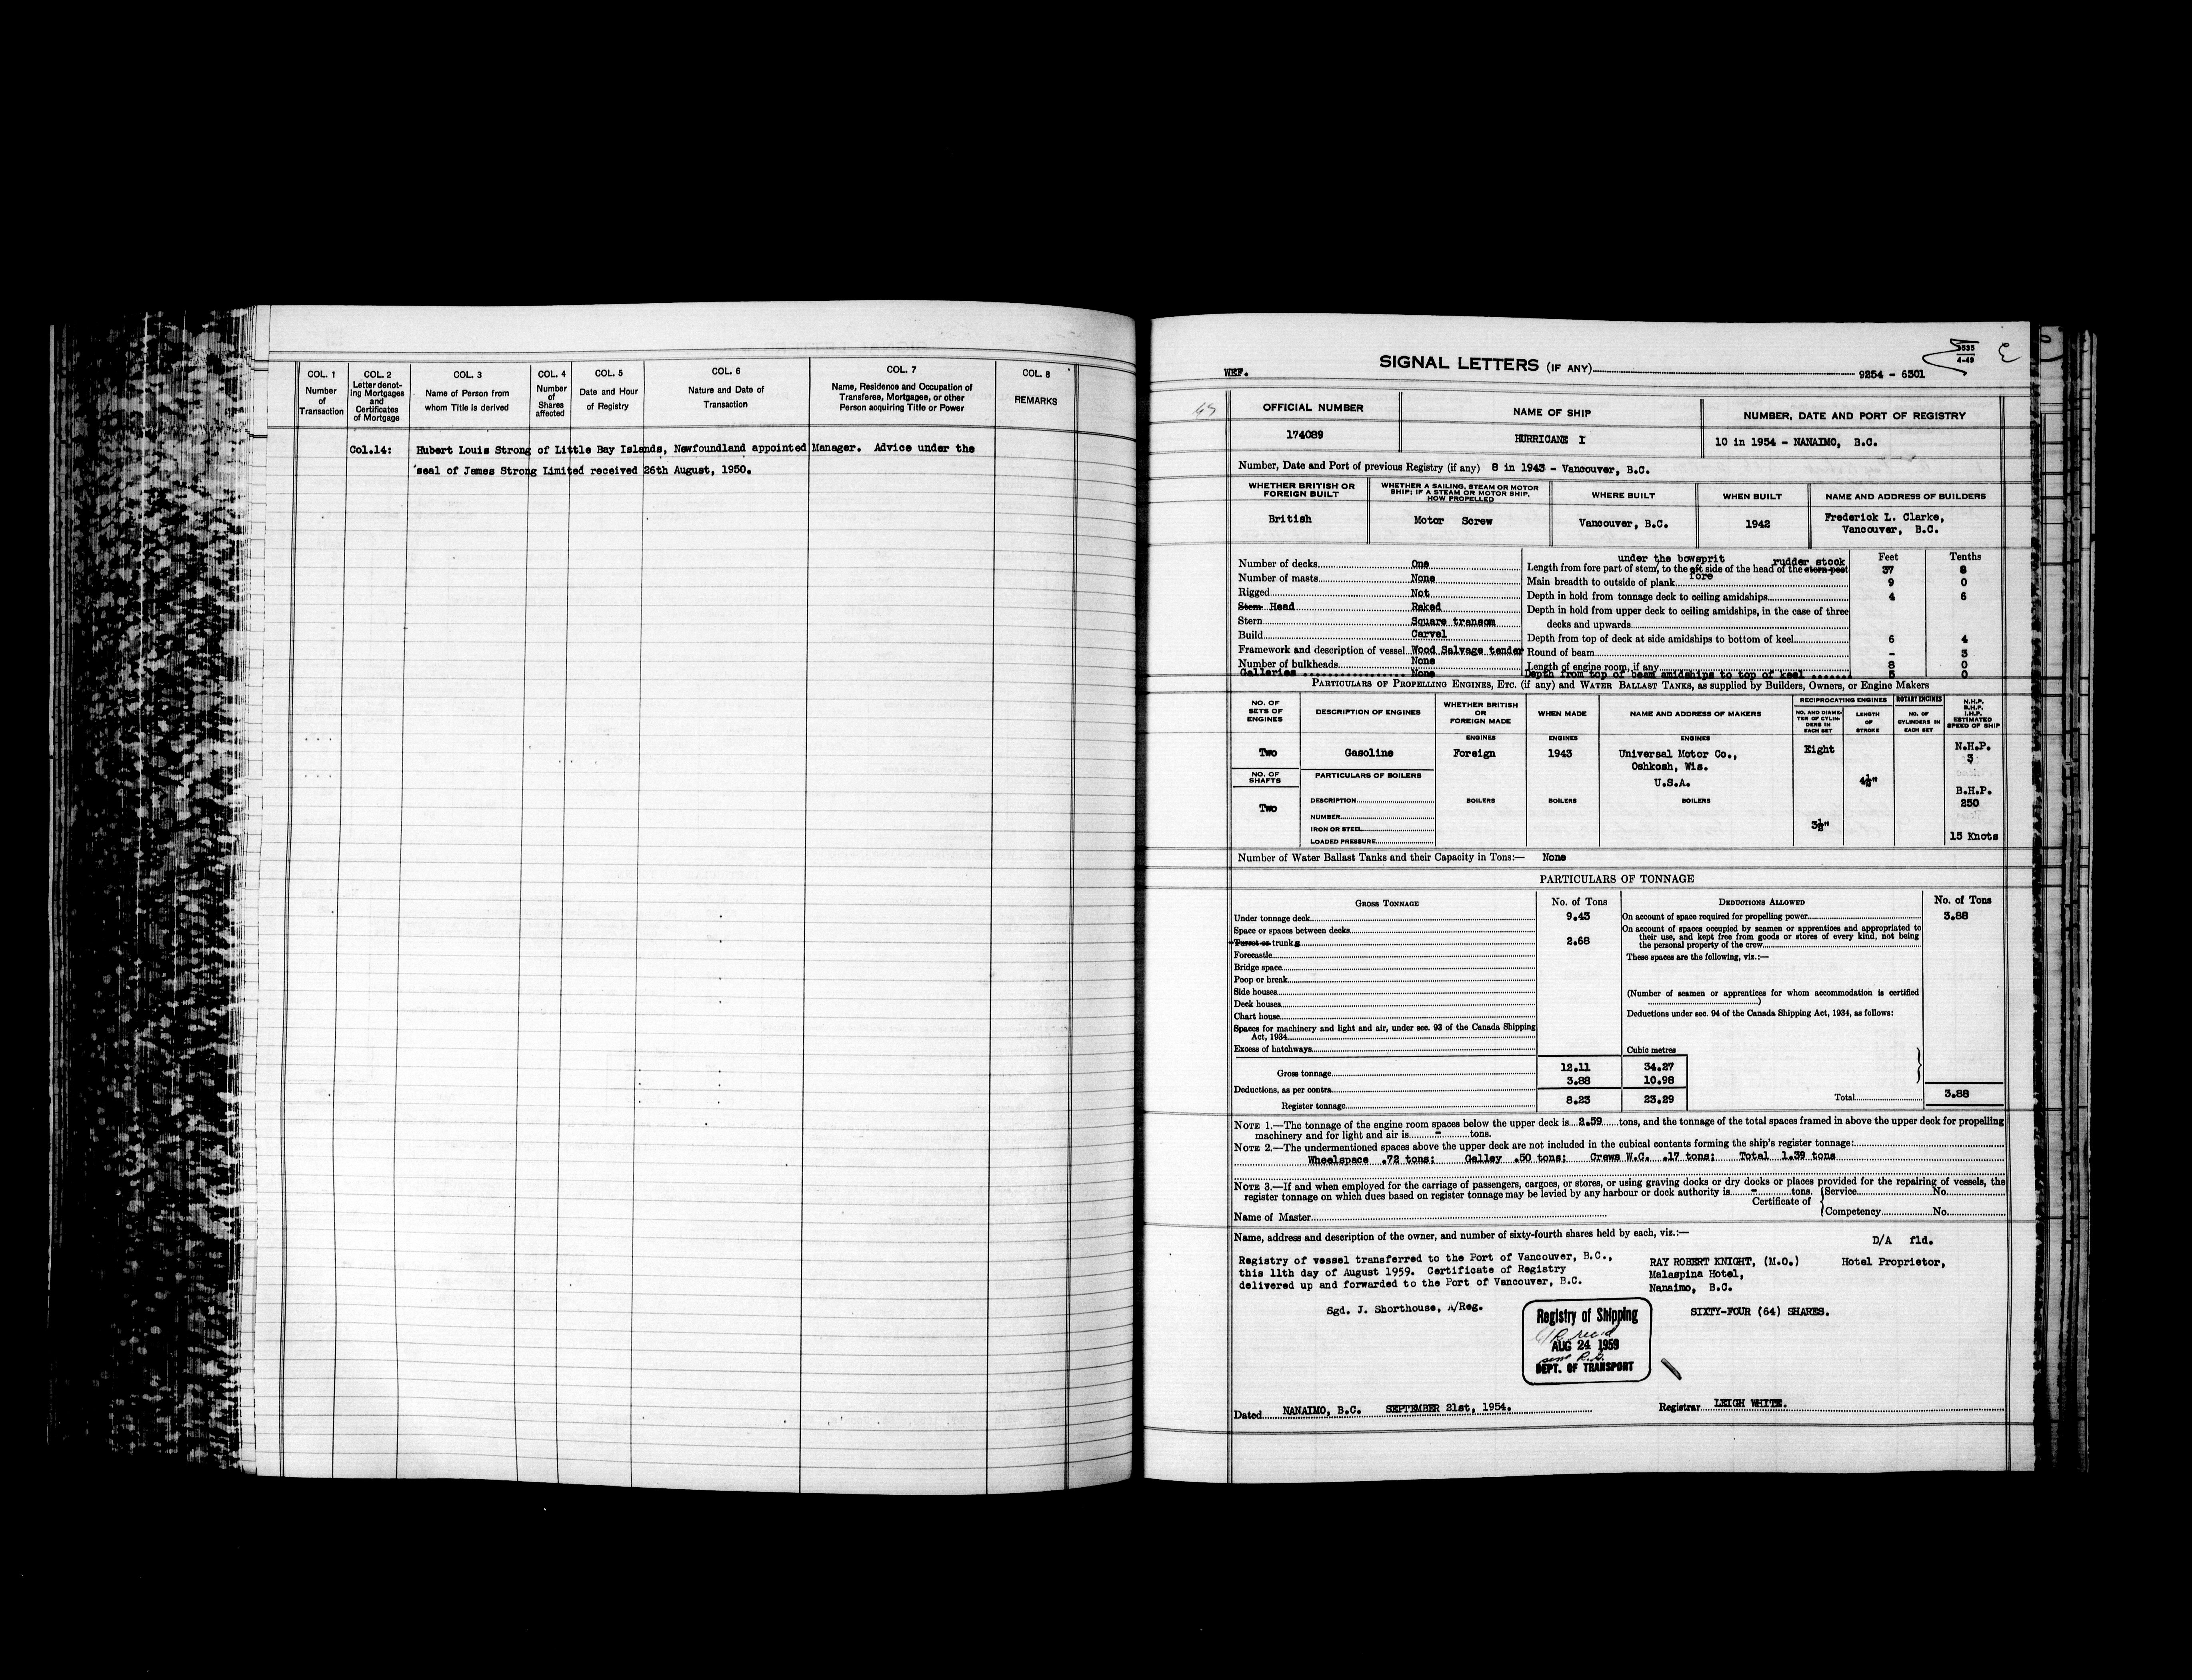 COL. 1
Number
of
Transaction
COL. 2
Letter denot-
ing Mortgages
and
Certificates
of Mortgage
COL. 3
Name of Person from
whom Title is derived
COL. 4
Number
of
Shares
affected
COL. 5
Date and Hour
of Registry
COL. 6
Nature and Date of
Transaction
COL. 7
Name, Residence and Occupation of
Transferee, Mortgagee, or other
Person acquiring Title or Power
COL. 8
REMARKS
Col.14: Hubert Louis Strong of Little Bay Islands, Newfoundland appointed Manager. Advice under the
seal of James Strong Limited received 26th August, 1950.
3535
4-49
WEF. SIGNAL LETTERS (IF ANY) 9254 - 6301
OFFICIAL NUMBER NAME OF SHIP NUMBER, DATE AND PORT OF REGISTRY
174089 HURRICANE I 10 in 1954 - NANAIMO, B.C.
Number, Date and Port of previous Registry (if any) 8 in 1943 - Vancouver, B.C.
WHETHER BRITISH OR
FOREIGN BUILT
WHETHER A SAILING, STEAM OR MOTOR
SHIP; IF A STEAM OR MOTOR SHIP,
HOW PROPELLED
WHERE BUILT WHEN BUILT NAME AND ADDRESS OF BUILDERS
British Motor Screw Vancouver, B.C. 1942 Frederick L. Clarke,
Vancouver, B.C.
Number of decks One
Number of masts None
Rigged Not
Stem Head Raked
Stern Square transom
Build Carvel
Framework and description of vessel Wood Salvage tender
Number of bulkheads None
Galleries None
Feet Tenths
under the bowsprit rudder stock
Length from fore part of stem, to the aft side of the head of the stern post 37 8
fore
Main breadth to outside of plank 9 0
Depth in hold from tonnage deck to ceiling amidships 4 6
Depth in hold from upper deck to ceiling amidships, in the case of three
decks and upwards
Depth from top of deck at side amidships to bottom of keel 6 4
Round of beam - 3
Length of engine room, if any 8 0
Depth from top of beam amidships to top of keel 5 0
PARTICULARS OF PROPELLING ENGINES, ETC. (if any) and WATER BALLAST TANKS, as supplied by Builders, Owners, or Engine Makers
NO. OF
SETS OF
ENGINES
DESCRIPTION OF ENGINES
WHETHER BRITISH
OR
FOREIGN MADE
WHEN MADE
NAME AND ADDRESS OF MAKERS
RECIPROCATING ENGINES
NO. AND DIAME-
TER OF CYLIN-
DERS IN
EACH SET
LENGTH
OF
STROKE
ROTARY ENGINES
NO. OF
CYLINDERS IN
EACH SET
N.H.P.
B.H.P.
I.H.P.
ESTIMATED
SPEED OF SHIP
ENGINES ENGINES ENGINES
Two Gasoline Foreign 1943 Universal Motor Co., Eight N.H.P.
Oshkosh, Wis. 3
NO. OF
SHAFTS
PARTICULARS OF BOILERS
U.S.A. 4½"
B.H.P.
Two DESCRIPTION BOILERS BOILERS BOILERS 250
NUMBER
IRON OR STEEL 3½"
LOADED PRESSURE 15 Knots
Number of Water Ballast Tanks and their Capacity in Tons:— None
PARTICULARS OF TONNAGE
GROSS TONNAGE No. of Tons
Under tonnage deck 9.43
Space or spaces between decks
Turret or trunks 2.68
Forecastle
Bridge space
Poop or break
Side houses
Deck houses
Chart house
Spaces for machinery and light and air, under sec. 93 of the Canada Shipping
Act, 1934
Excess of hatchways Cubic metres
Gross tonnage 12.11 34.27
Deductions, as per contra 3.88 10.98
Register tonnage 8.23 23.29
DEDUCTIONS ALLOWED No. of Tons
On account of space required for propelling power 3.88
On account of spaces occupied by seamen or apprentices and appropriated to
their use, and kept free from goods or stores of every kind, not being
the personal property of the crew
These spaces are the following, viz.:—
(Number of seamen or apprentices for whom accommodation is certified
)
Deductions under sec. 94 of the Canada Shipping Act, 1934, as follows:
Total 3.88
NOTE 1.—The tonnage of the engine room spaces below the upper deck is 2.59 tons, and the tonnage of the total spaces framed in above the upper deck for propelling
machinery and for light and air is - tons.
NOTE 2.—The undermentioned spaces above the upper deck are not included in the cubical contents forming the ship's register tonnage:
Wheelspace .72 tons; Galley .50 tons; Crews W.C. .17 tons; Total 1.39 tons
NOTE 3.—If and when employed for the carriage of passengers, cargoes, or stores, or using graving docks or dry docks or places provided for the repairing of vessels, the
register tonnage on which dues based on register tonnage may be levied by any harbour or dock authority is - tons.
Certificate of Service No.
Competency No.
Name of Master
Name, address and description of the owner, and number of sixty-fourth shares held by each, viz.:—
D/A fld.
Registry of vessel transferred to the Port of Vancouver, B.C.,
this 11th day of August 1959. Certificate of Registry
delivered up and forwarded to the Port of Vancouver, B.C.
Sgd. J. Shorthouse, A/Reg.
RAY ROBERT KNIGHT, (M.O.) Hotel Proprietor,
Malaspina Hotel,
Nanaimo, B.C.
SIXTY-FOUR (64) SHARES.
Registry of Shipping
AUG 24 1959
DEPT. OF TRANSPORT
Dated NANAIMO, B.C. SEPTEMBER 21st, 1954. Registrar LEIGH WHITE.